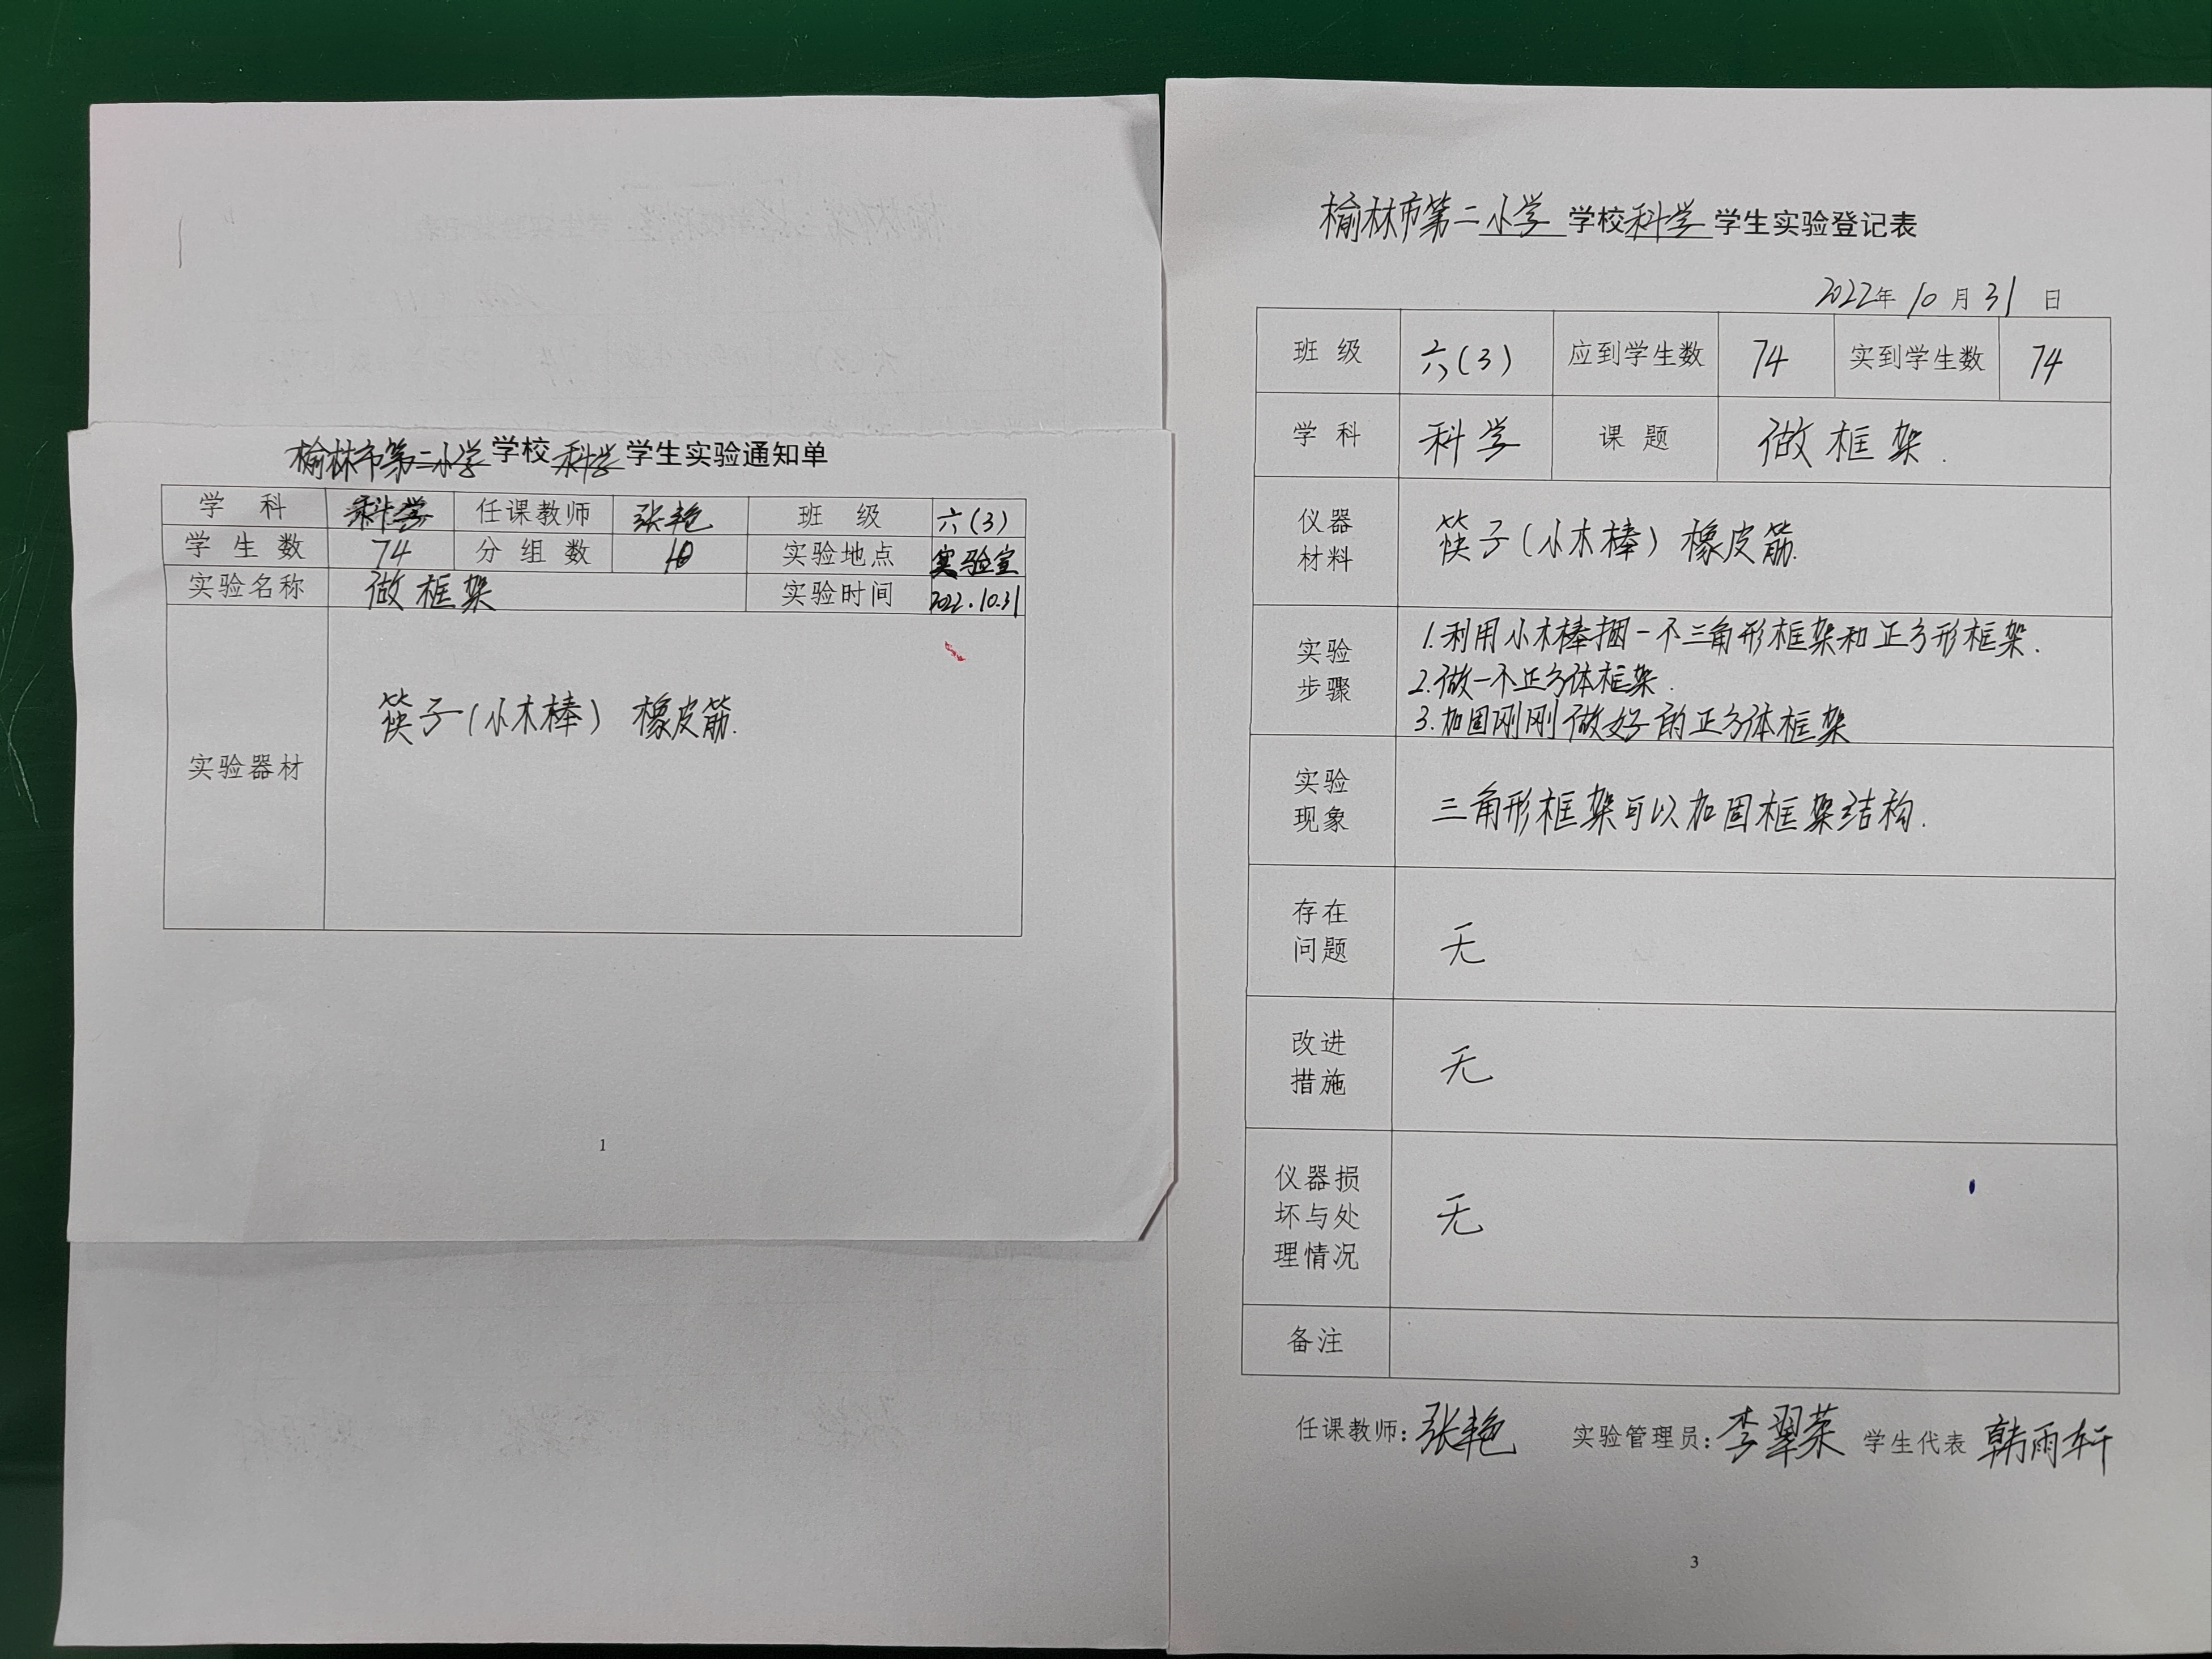 榆林市第二小学学校科学学生实验通知单
学 科 科学 任课教师 张艳 班 级 六(3)
学 生 数 74 分 组 数 10 实验地点 实验室
实验名称 做框架 实验时间 2022.10.31
实验器材 筷子(小木棒) 橡皮筋.
1
榆林市第二小学学校科学学生实验登记表
2022年10月31日
班 级 六(3) 应到学生数 74 实到学生数 74
学 科 科学 课 题 做框架.
仪器
材料
筷子(小木棒) 橡皮筋.
实验
步骤
1.利用小木棒捆一个三角形框架和正方形框架.
2.做一个正方体框架.
3.加固刚刚做好的正方体框架
实验
现象
三角形框架可以加固框架结构.
存在
问题
无
改进
措施
无
仪器损
坏与处
理情况
无
备注
任课教师:张艳 实验管理员:李翠荣 学生代表 韩雨轩
3